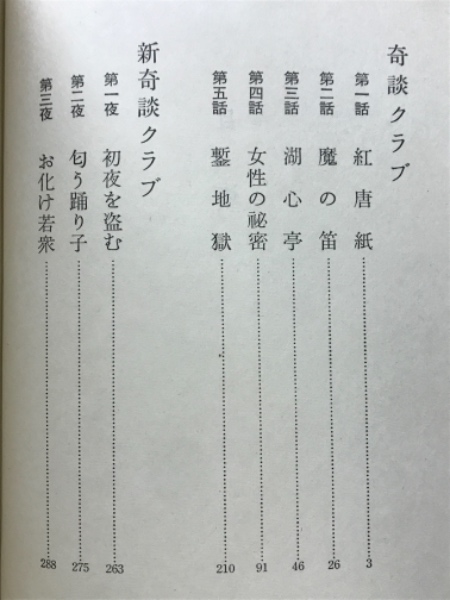 奇談クラブ
第一話 紅唐紙 3
第二話 魔の笛 26
第三話 湖心亭 46
第四話 女性の祕密 91
第五話 塹地獄 210
新奇談クラブ
第一夜 初夜を盗む 263
第二夜 匂う踊り子 275
第三夜 お化け若衆 288